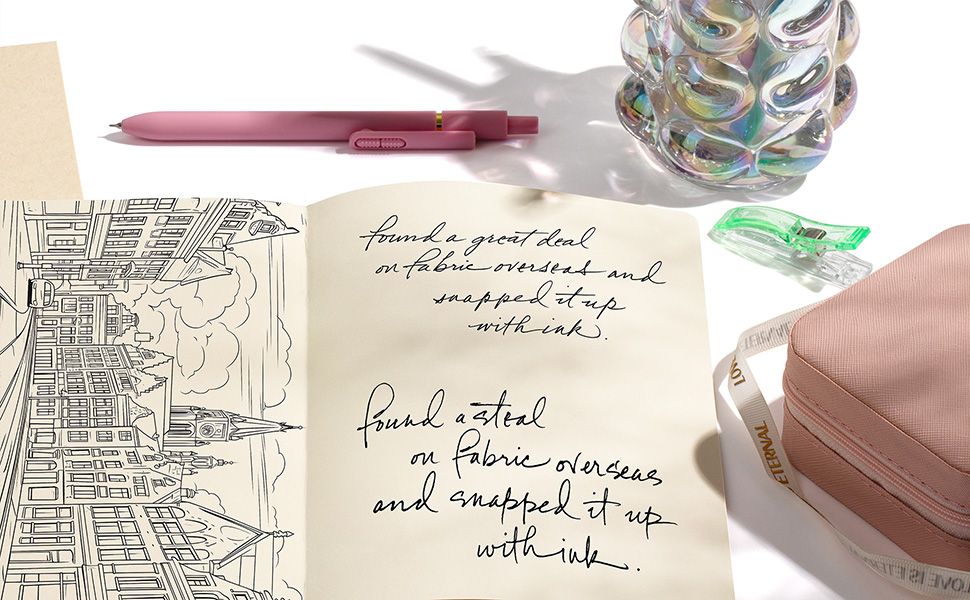 found a great deal
on fabric overseas and
snapped it up
with ink.
found a steal
on fabric overseas
and snapped it up
with ink.
LOVE
ETERNAL
LOVE IS ETERNAL